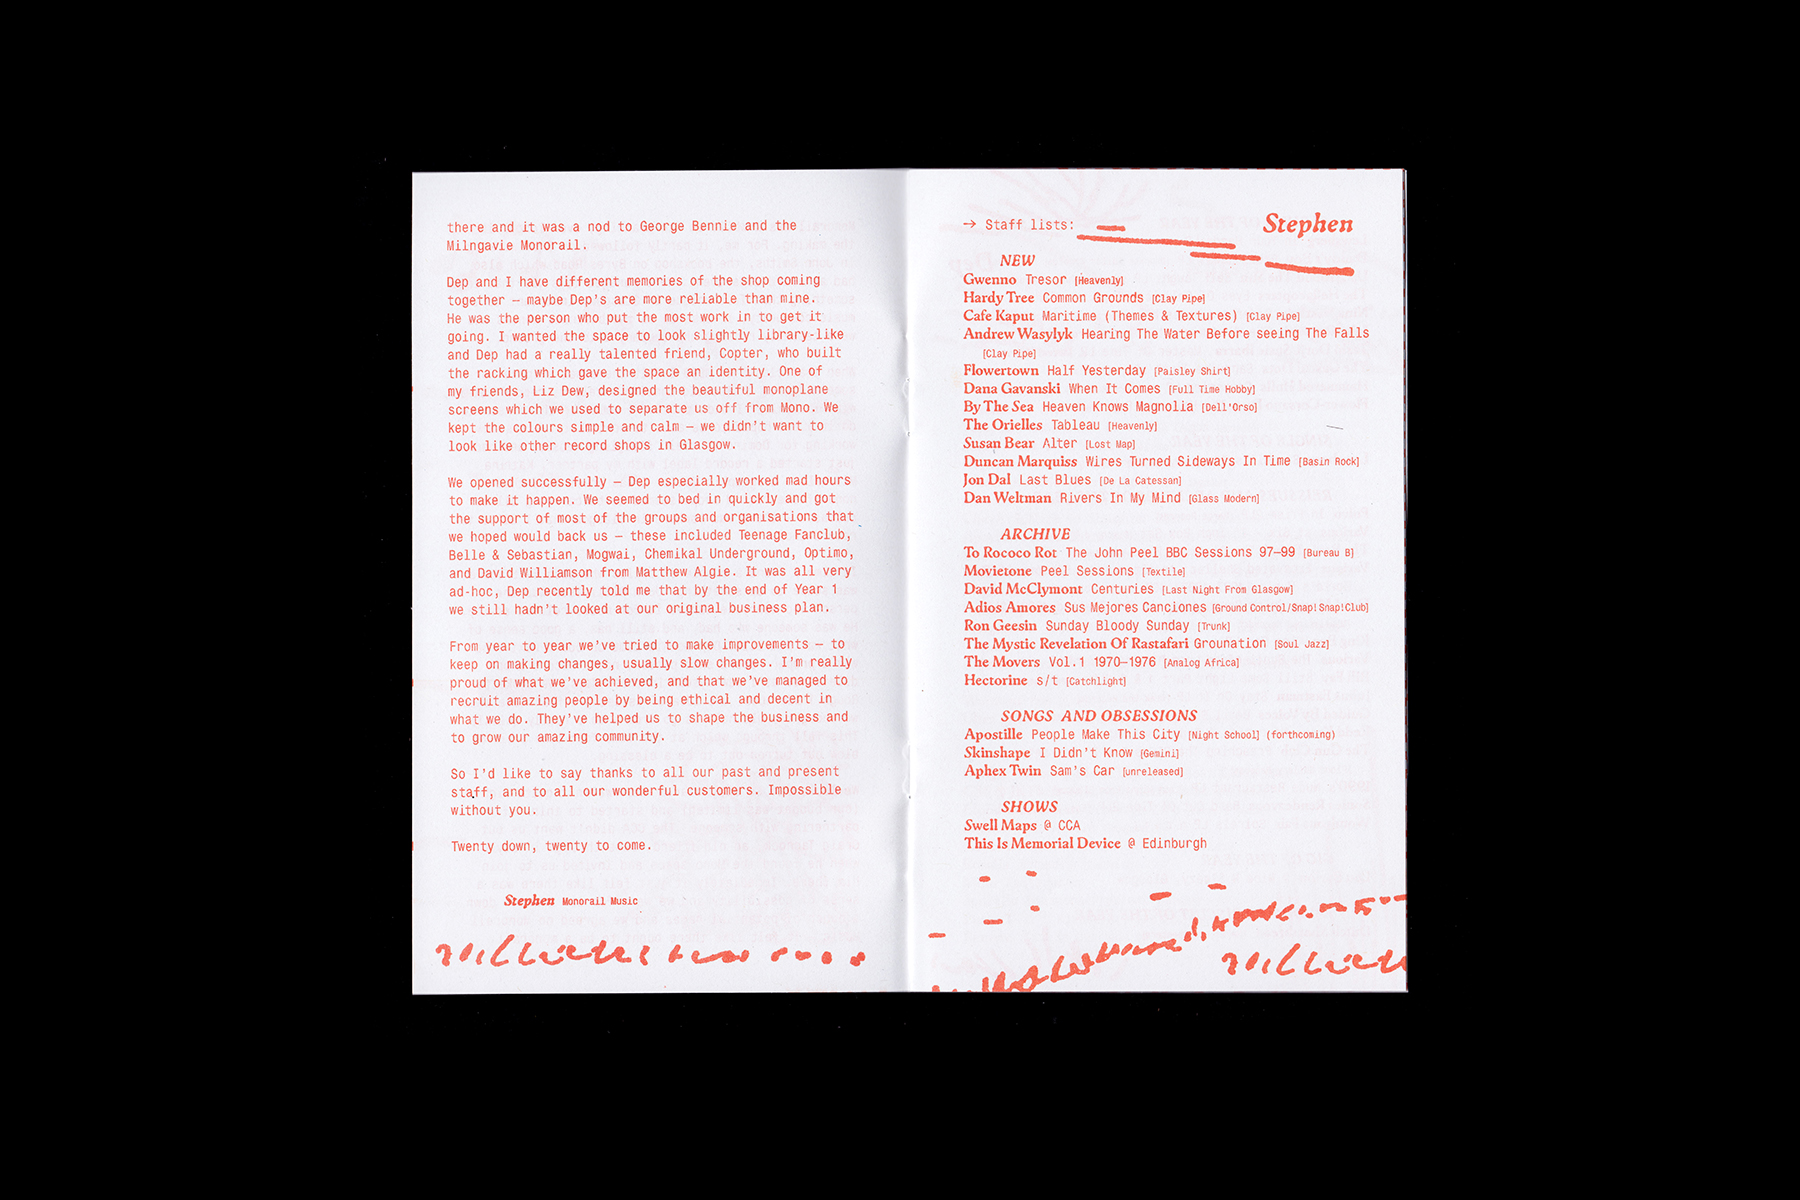 there and it was a nod to George Bennie and the
Milngavie Monorail.
Dep and I have different memories of the shop coming
together – maybe Dep's are more reliable than mine.
He was the person who put the most work in to get it
going. I wanted the space to look slightly library-like
and Dep had a really talented friend, Copter, who built
the racking which gave the space an identity. One of
my friends, Liz Dew, designed the beautiful monoplane
screens which we used to separate us off from Mono. We
kept the colours simple and calm – we didn't want to
look like other record shops in Glasgow.
We opened successfully – Dep especially worked mad hours
to make it happen. We seemed to bed in quickly and got
the support of most of the groups and organisations that
we hoped would back us – these included Teenage Fanclub,
Belle & Sebastian, Mogwai, Chemikal Underground, Optimo,
and David Williamson from Matthew Algie. It was all very
ad-hoc, Dep recently told me that by the end of Year 1
we still hadn't looked at our original business plan.
From year to year we've tried to make improvements – to
keep on making changes, usually slow changes. I'm really
proud of what we've achieved, and that we've managed to
recruit amazing people by being ethical and decent in
what we do. They've helped us to shape the business and
to grow our amazing community.
So I'd like to say thanks to all our past and present
staff, and to all our wonderful customers. Impossible
without you.
Twenty down, twenty to come.
Stephen Monorail Music
→ Staff lists: Stephen
NEW
Gwenno Tresor [Heavenly]
Hardy Tree Common Grounds [Clay Pipe]
Cafe Kaput Maritime (Themes & Textures) [Clay Pipe]
Andrew Wasylyk Hearing The Water Before seeing The Falls
[Clay Pipe]
Flowertown Half Yesterday [Paisley Shirt]
Dana Gavanski When It Comes [Full Time Hobby]
By The Sea Heaven Knows Magnolia [Dell'Orso]
The Orielles Tableau [Heavenly]
Susan Bear Alter [Lost Map]
Duncan Marquiss Wires Turned Sideways In Time [Basin Rock]
Jon Dal Last Blues [De La Catessan]
Dan Weltman Rivers In My Mind [Glass Modern]
ARCHIVE
To Rococo Rot The John Peel BBC Sessions 97–99 [Bureau B]
Movietone Peel Sessions [Textile]
David McClymont Centuries [Last Night From Glasgow]
Adios Amores Sus Mejores Canciones [Ground Control/Snap! Snap! Club]
Ron Geesin Sunday Bloody Sunday [Trunk]
The Mystic Revelation Of Rastafari Grounation [Soul Jazz]
The Movers Vol.1 1970–1976 [Analog Africa]
Hectorine s/t [Catchlight]
SONGS AND OBSESSIONS
Apostille People Make This City [Night School] (forthcoming)
Skinshape I Didn't Know [Gemini]
Aphex Twin Sam's Car [unreleased]
SHOWS
Swell Maps @ CCA
This Is Memorial Device @ Edinburgh